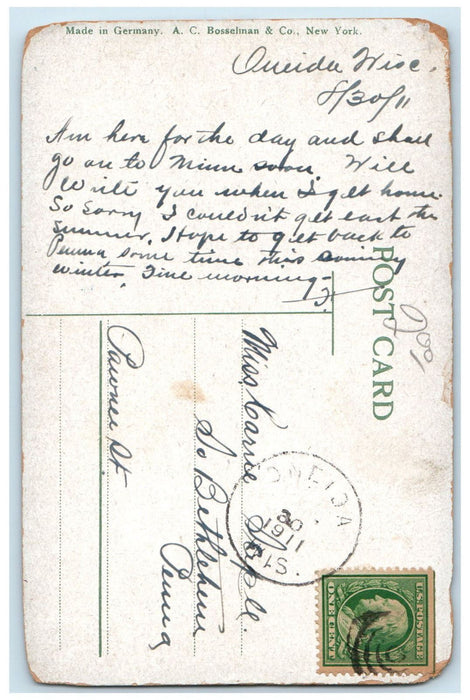 Made in Germany. A. C. Bosselman & Co., New York.
Oneida Wisc.
8/30/11
Am here for the day and shall
go on to Minn soon. Will
Write you when I get home.
So sorry I couldn't get east this
summer. Hope to get back to
Penna some time this coming
winter. Fine morning-
POST CARD
Miss Karrie
So Bethlehem
Penna
Pawnee St.
ONEIDA
30
1911
WIS.
U.S. POSTAGE
ONE CENT